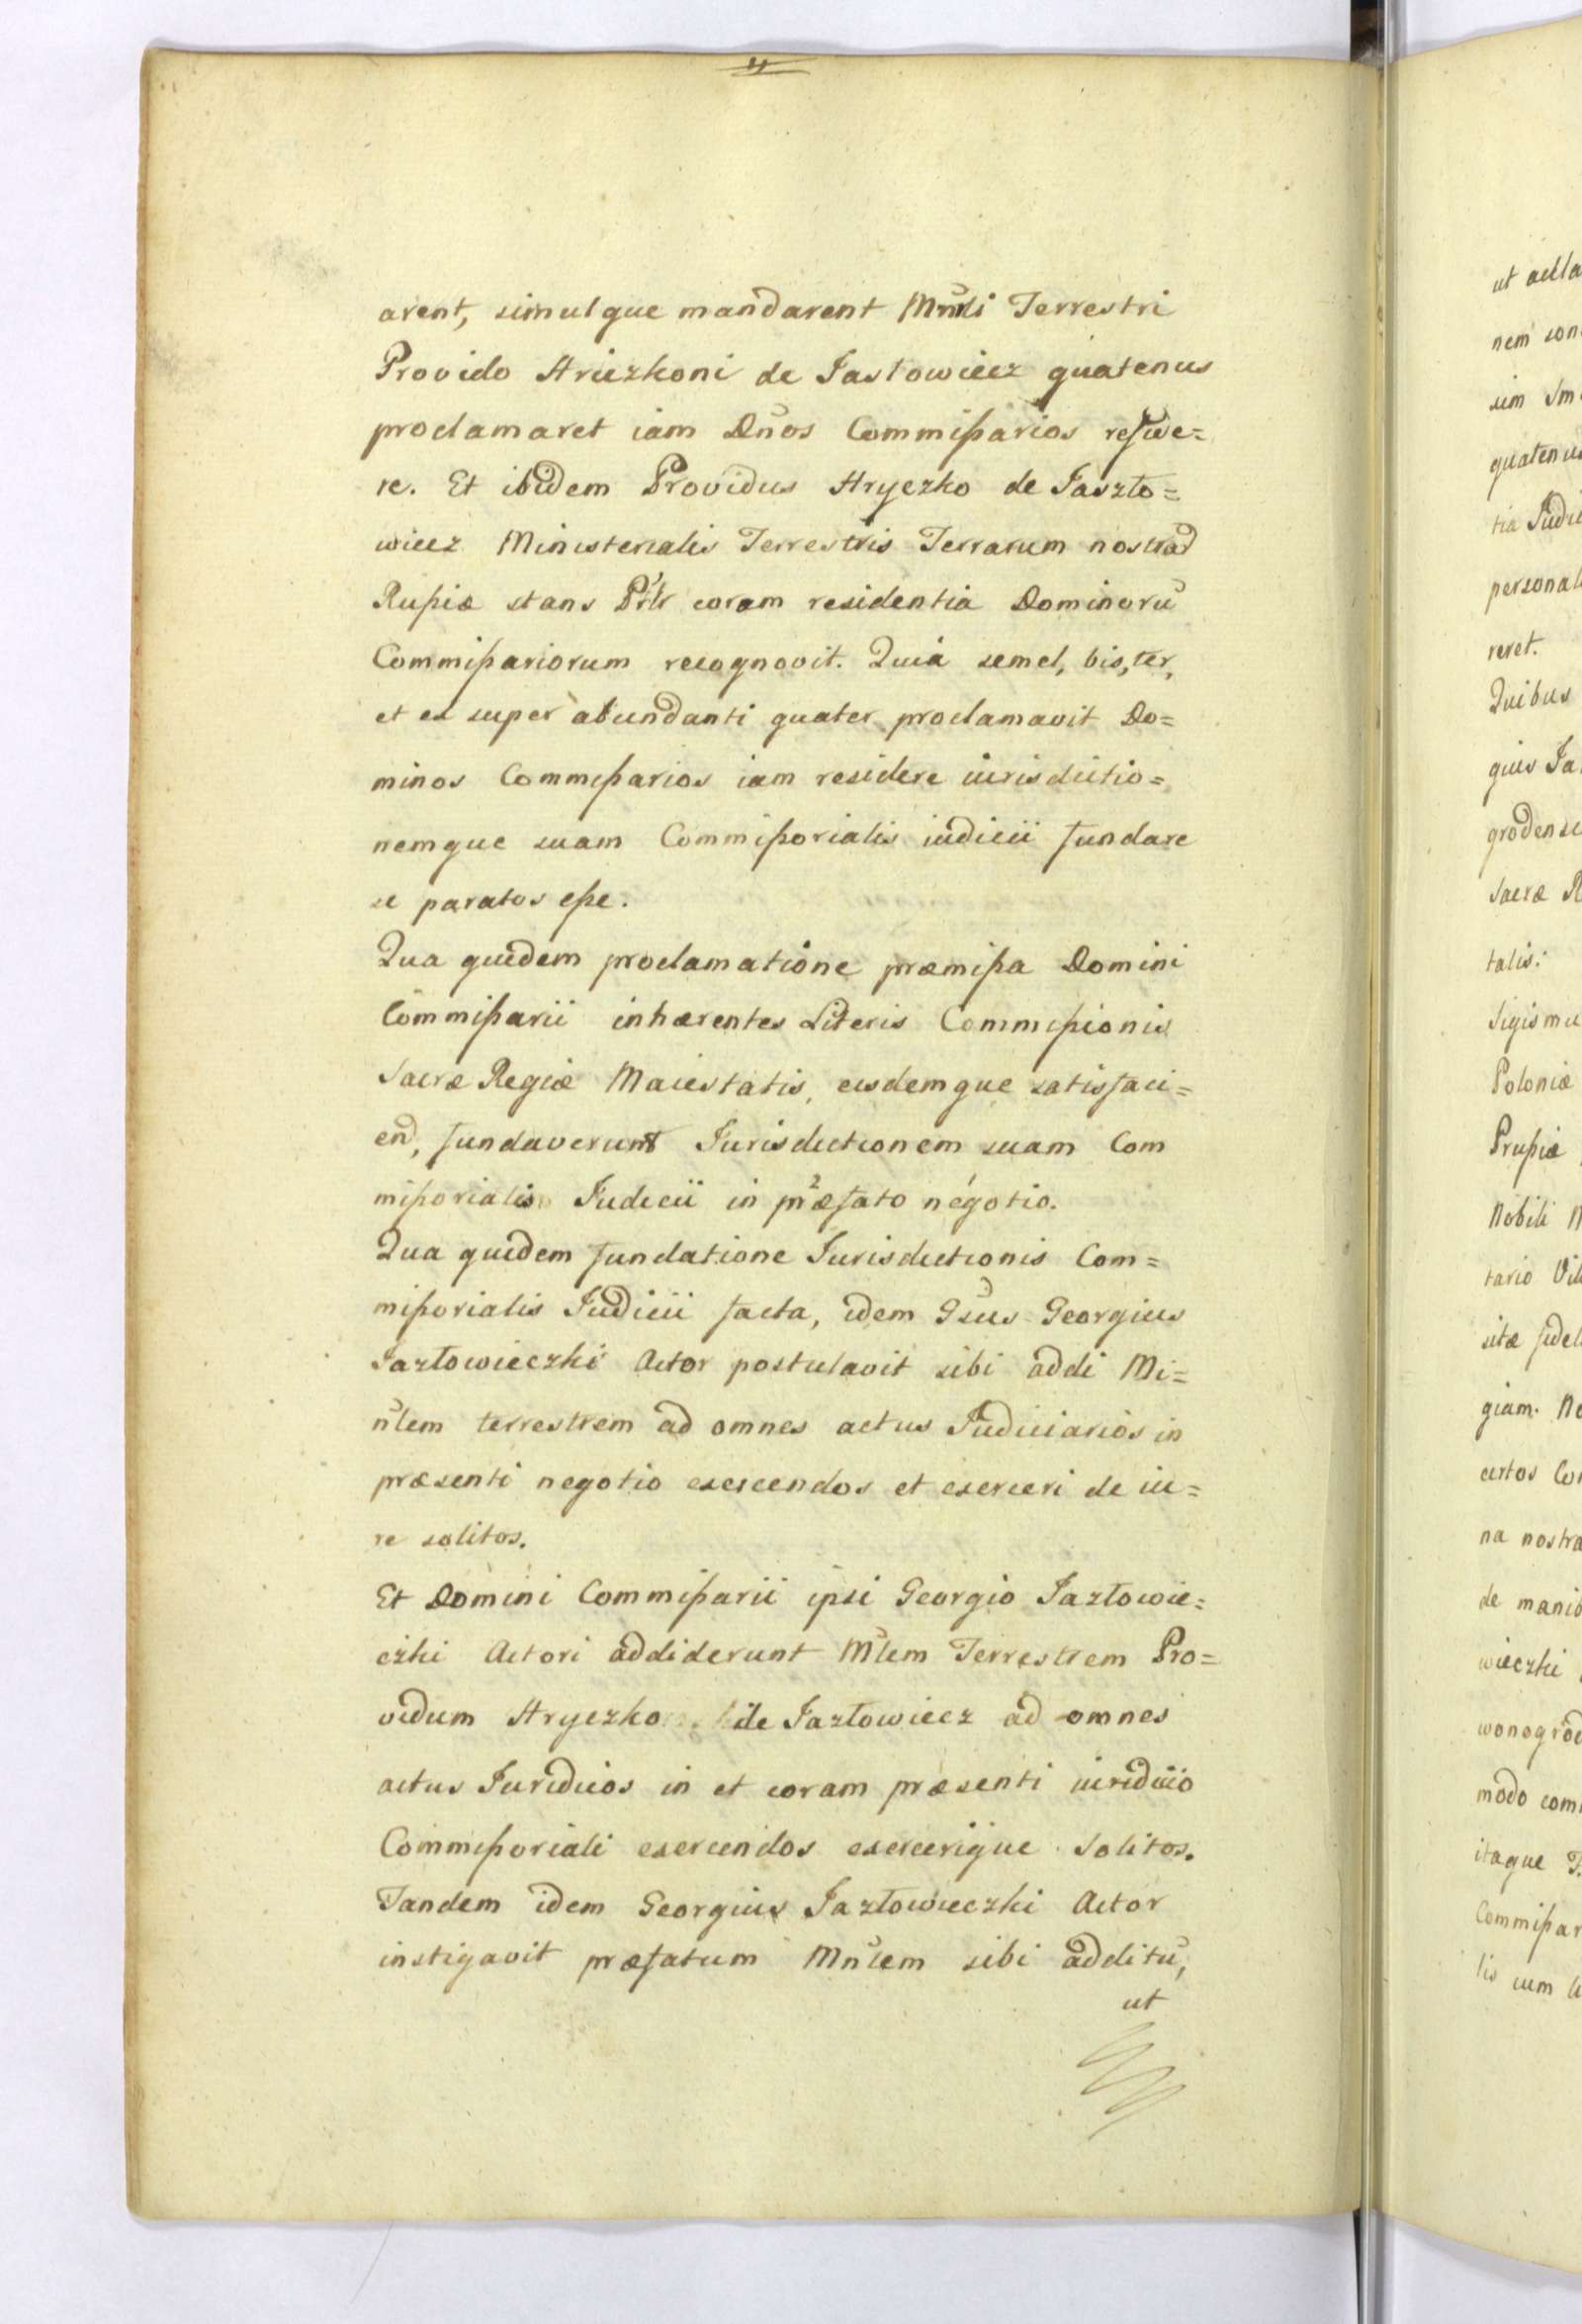 4
arent, simulque mandarent Mnrli Terrestri
Provido Hriczkoni de Jastowiecz quatenus
proclamaret iam Dnos Commißarios
re. Et ibidem Providus Hryczko de Jaszło=
wiecz Ministerialis Terrestris Terrarum nostrad
Rußiæ stans Ptlr coram residentia Dominorū
Commißariorum recognovit. Quia semel, bis, ter,
et ex super abundanti quater proclamavit Do=
minos Commißarios iam residere iurisdictio=
nemque suam Commißorialis iudicii fundare
se paratos eße.
Qua quidem proclamatione præmißa Domini
Commißarii inhærentes Literis Commißionis
Sacræ Regiæ Maiestatis, eisdemque satisfaci=
end, fundaverunt Jurisdictionem suam Com
mißorialis Judicii in præfato négotio.
Qua quidem fundatione Jurisdictionis Com=
mißorialis Judicii facta, idem Gsus Georgius
Jazłowieczki Actor postulavit sibi addi Mi=
nlem terrestrem ad omnes actus Judiciarios in
præsenti negotio exercendos et exerceri de iu=
re solitos.
Et Domini Commißarii ipsi Georgio Jazłowie=
czki Actori addiderunt Mlem Terrestrem Pro=
vidum Hryczko de Jazłowiecz ad omnes
actus Juridicos in et coram præsenti iuridicio
Commißoriali exercendos exercerique solitos.
Tandem idem Georgius Jazłowieczki Actor
instigavit præfatum Mnlem sibi additū,
ut
ut
nem
sim
quatenus
tia
personal
reret.
Quibus
gius Ja
grodense
Sacræ R
talis:
Sigismu
Poloniæ
Prußiæ
Nobili
tario
sitæ fidel
giam. No
certos Co
na nostra
de
wieczki
wonogrod
modo com
itaque
Commißar
lis cum